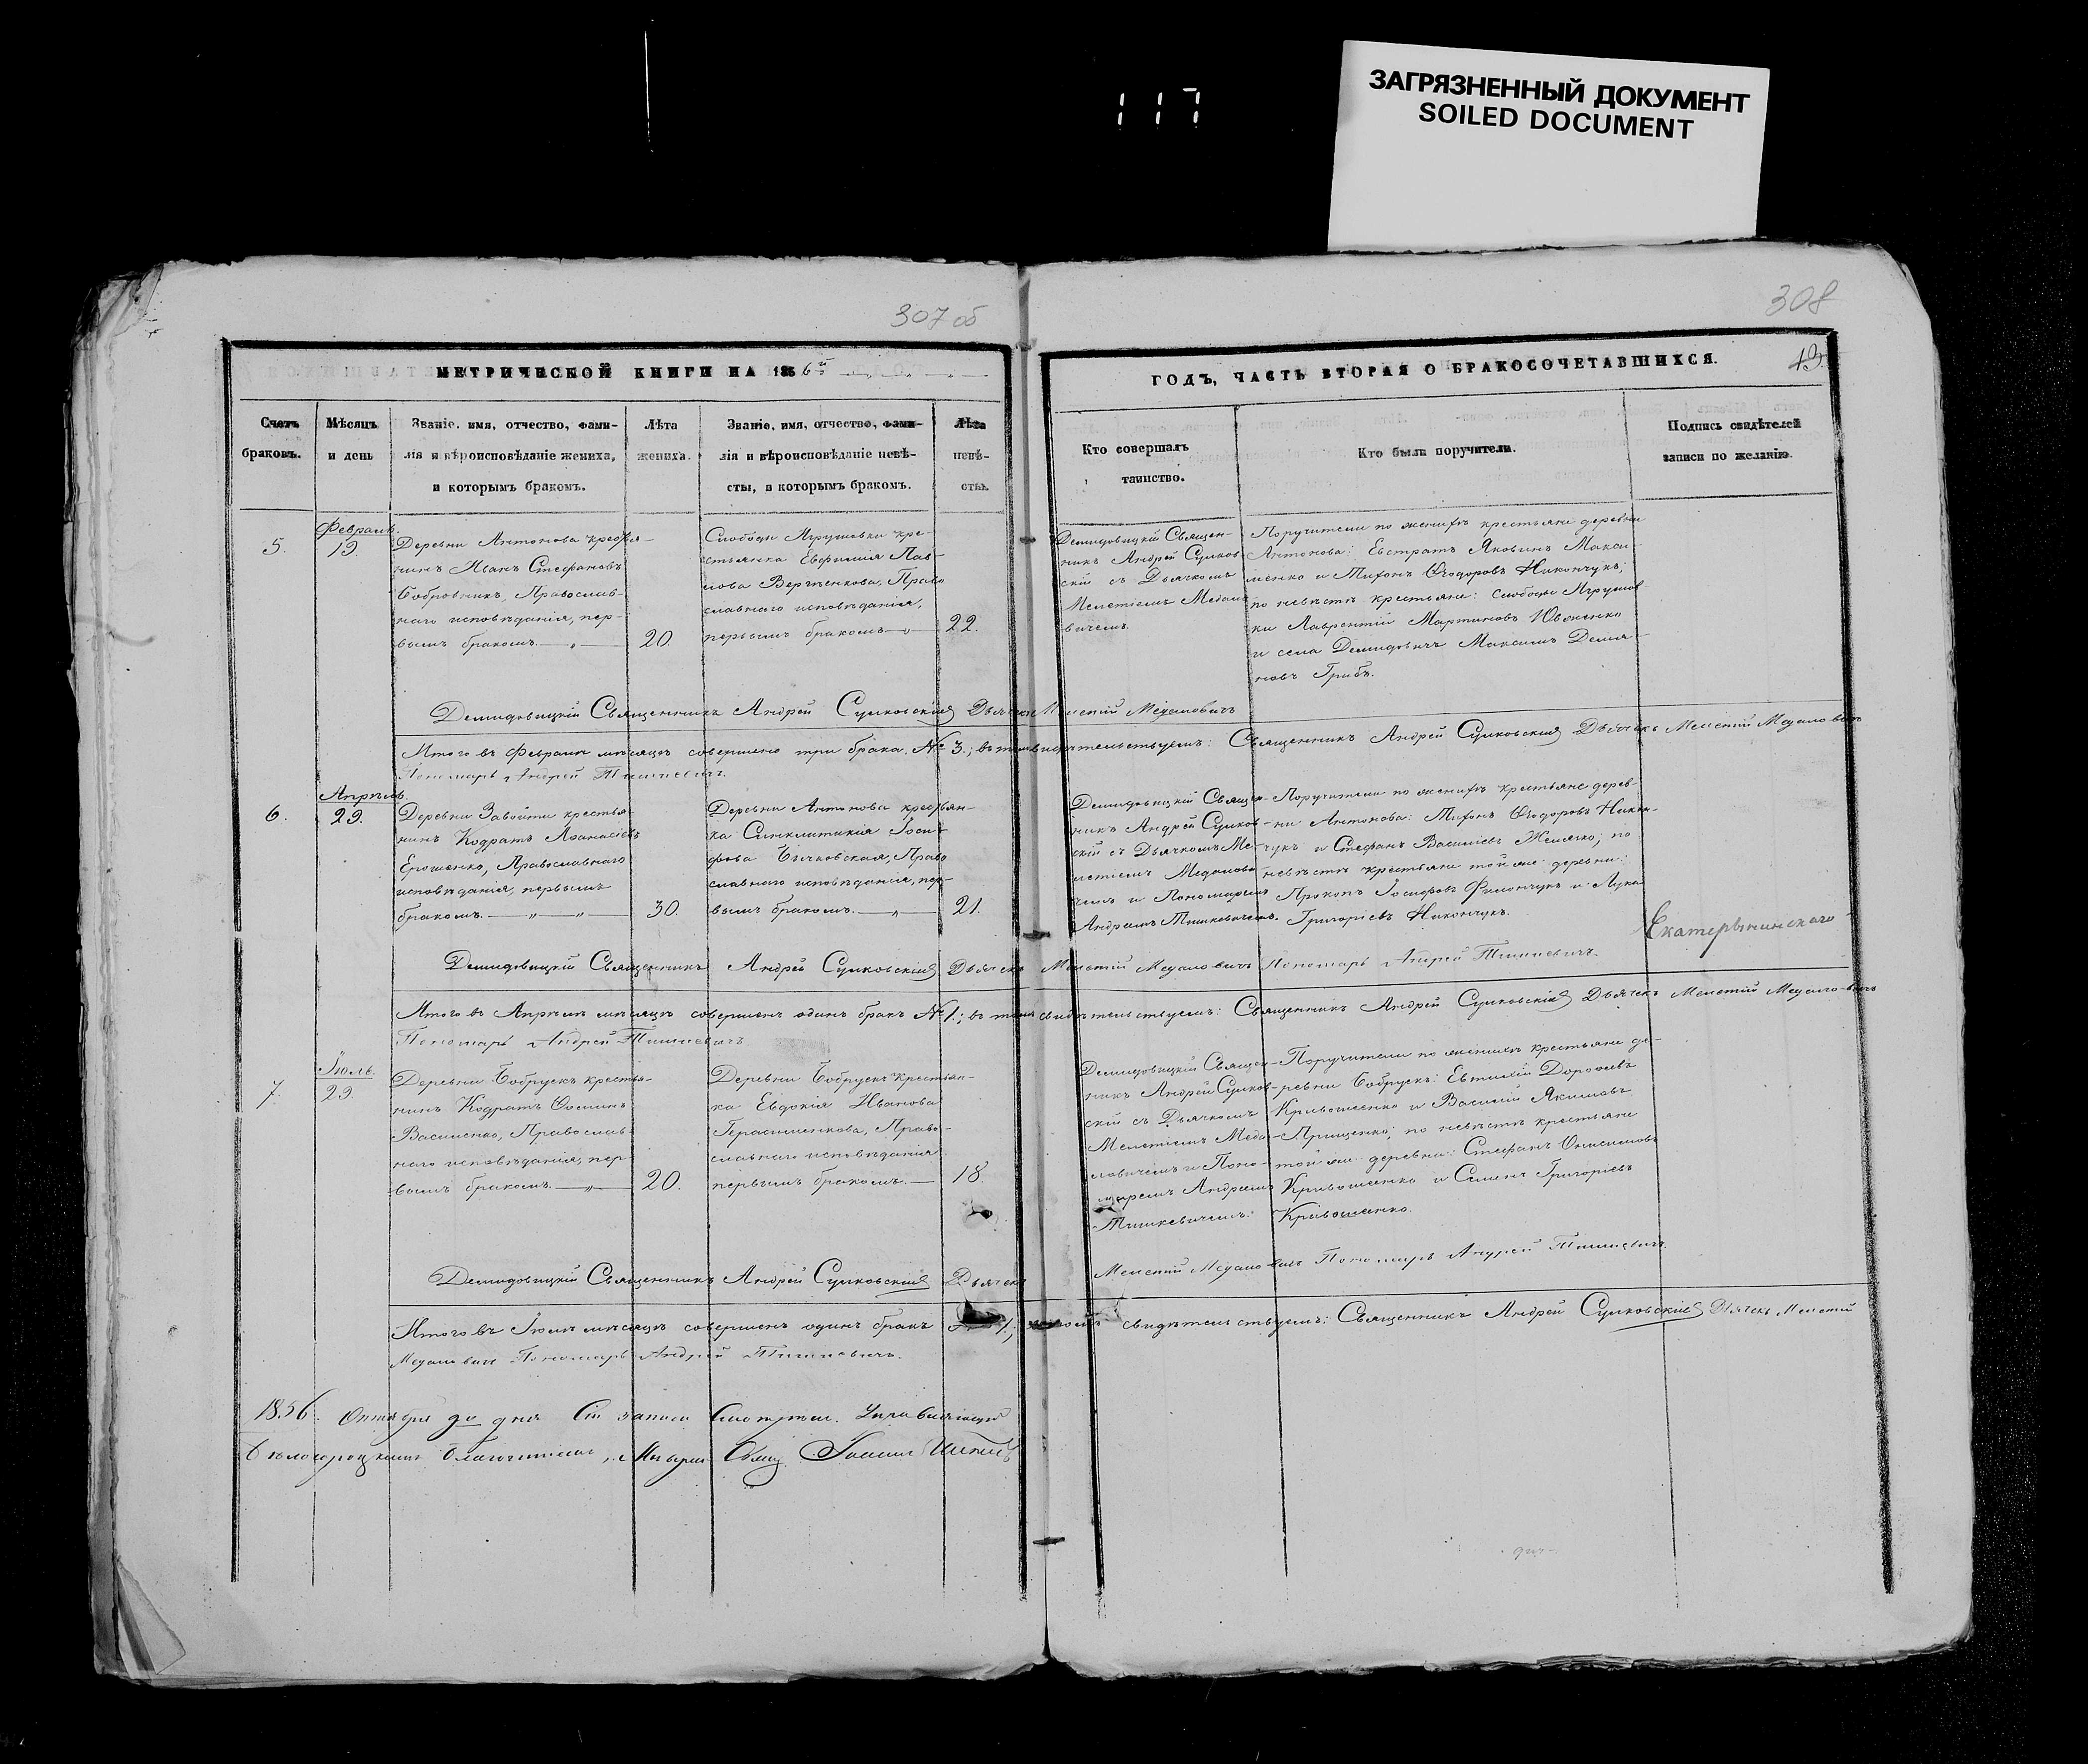 117
ЗАГРЯЗНЕННЫЙ ДОКУМЕНТ
SOILED DOCUMENT
307 об
308
МЕТРИЧЕСКОЙ КНИГИ НА 1856й
Счетъ
браковъ.
Мѣсяцъ
и день
Званіе, имя, отчество, фами-
лія и вѣроисповѣданіе жениха,
и которымъ бракомъ.
Лѣта
жениха.
Званіе, имя, отчество, фами-
лія и вѣроисповѣданіе невѣ-
сты, и которымъ бракомъ.
Лѣта
невѣ-
сты.
ГОДЪ, ЧАСТЬ ВТОРАЯ О БРАКОСОЧЕТАВШИХСЯ.
Кто совершалъ
таинство.
Кто были поручители.
Подпись свидѣтелей
записи по желанію.
5.
Февраль.
19
Деревни Антонова крестья-
нинъ Иванъ Стефановъ
Бобровникъ, Православ-
наго исповѣданія, пер-
вымъ бракомъ.
20.
Слободы кре-
стьянка Евфимія Пав-
лова Право
славнаго исповѣданія,
первымъ бракомъ
22.
Демидовицкій Священ-
никъ Андрей Сулков-
скій съ Дьячкомъ
Мелетіемъ
вичемъ.
Поручители по женихѣ крестьяне деревни
Антонова: Евстратъ Яковлевъ Макси-
менко и Никончукъ;
по невѣстѣ крестьяне: слободы
ки Лаврентій Мартиновъ
и села Демидовичъ Максимъ Демья-
новъ Грибъ.
Демидовицкій Священникъ Андрей Сулковскій Дьячекъ Мелетій
Итого въ Февралѣ мѣсяцѣ совершено три брака. № 3.; въ томъ свидѣтельствуемъ: Священникъ Андрей Сулковскій Дьячекъ Мелетій
Пономарь Андрей Тишкевичъ.
6.
Апрѣль.
29.
Деревни Завойти крестья-
нинъ Кодратъ Аѳанасіевъ
Ерошенко, Православнаго
исповѣданія, первымъ
бракомъ.
30.
Деревни Антонова крестьян-
ка Синклитикія Іоси-
фова Бычковская, Право
славнаго исповѣданія, пер-
вымъ бракомъ.
21.
Демидовицкій Священ-
никъ Андрей Сулков-
скій съ Дьячкомъ Ме-
летіемъ
чемъ и Пономаремъ
Андреемъ Тишкевичемъ.
Поручители по женихѣ крестьяне дерев-
ни Антонова: Никон-
чукъ и Стефанъ Василіевъ по
невѣстѣ крестьяне той же деревни:
Прокопъ Іосифовъ Филончукъ и Лука
Григоріевъ Никончукъ.
Екатерининскаго
Демидовицкій Священникъ Андрей Сулковскій Дьячекъ Мелетій Пономарь Андрей Тишкевичъ.
Итого въ Апрѣлѣ мѣсяцѣ совершенъ одинъ бракъ № 1.; въ томъ свидѣтельствуемъ: Священникъ Андрей Сулковскій Дьячекъ Мелетій
Пономарь Андрей Тишкевичъ
7.
Іюль.
29.
Деревни Бобрускъ крестья-
нинъ Кодратъ Ѳоминъ
Василенко, Православ-
наго исповѣданія, пер-
вымъ бракомъ.
20.
Деревни Бобрускъ крестьян-
ка Евдокія Иванова
Герасименкова, Право-
славнаго исповѣданія
первымъ бракомъ.
18.
Демидовицкій Священ-
никъ Андрей Сулков-
скій съ Дьячкомъ
Мелетіемъ
ловичемъ и Поно-
маремъ Андреемъ
Тишкевичемъ.
Поручители по женихѣ крестьяне де-
ревни Бобрускъ: Евтихій Дорофеевъ
Кривошеенко и Василій Якимовъ
Прищенко; по невѣстѣ крестьяне
той же деревни: Стефанъ Онисимовъ
Кривошеенко и Семенъ Григоріевъ
Кривошеенко.
Демидовицкій Священникъ Андрей Сулковскій Дьячекъ
Мелетій Пономарь Андрей Тишкевичъ.
Итого въ Іюлѣ мѣсяцѣ совершенъ одинъ бракъ № 1.; въ томъ свидѣтельствуемъ: Священникъ Андрей Сулковскій Дьячекъ Мелетій
Пономарь Андрей Тишкевичъ.
1856. Октября дня Сіи записи